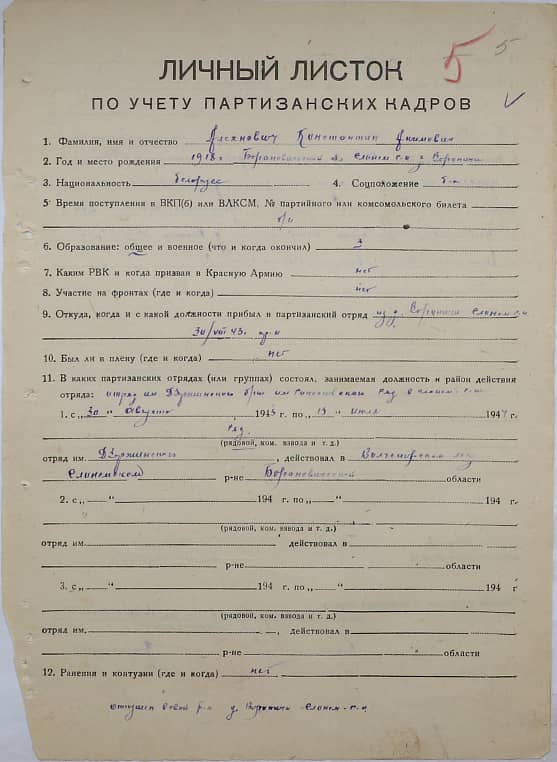 5 5
ЛИЧНЫЙ ЛИСТОК
ПО УЧЕТУ ПАРТИЗАНСКИХ КАДРОВ
1. Фамилия, имя и отчество Алсянович Константин Якимович
2. Год и место рождения 1918г Барановичской о. Слоним с-и д Сороничи
3. Национальность белорус 4. Соцположение
5 Время поступления в ВКП(б) или ВЛКСМ, № партийного или комсомольского билета
б/п
6. Образование: общее и военное (что и когда окончил) 3
7. Каким РВК и когда призван в Красную Армию нет
8. Участие на фронтах (где и когда) нет
9. Откуда, когда и с какой должности прибыл в партизанский отряд из д.
30/VIII 43.
10. Был ли в плену (где и когда) нет
11. В каких партизанских отрядах (или группах) состоял, занимаемая должность и район действия
отряда: отряд им Дзержинского бриг им
1. с „30“ Августа 1943 г. по „13“ июля 1944 г.
ряд.
(рядовой, ком. взвода и т. д.)
отряд им. Дзержинского, действовал в
Слонимском р-не Барановичской области
2. с „ “ 194 г. по „ “ 194 г.
(рядовой, ком. взвода и т. д.)
отряд им. действовал в
р-не области
3. с „ “ 194 г. по „ “ 194 г.
(рядовой, ком. взвода и т. д.)
отряд им. , действовал в
р-не области
12. Ранения и контузии (где и когда) нет
д. Слоним